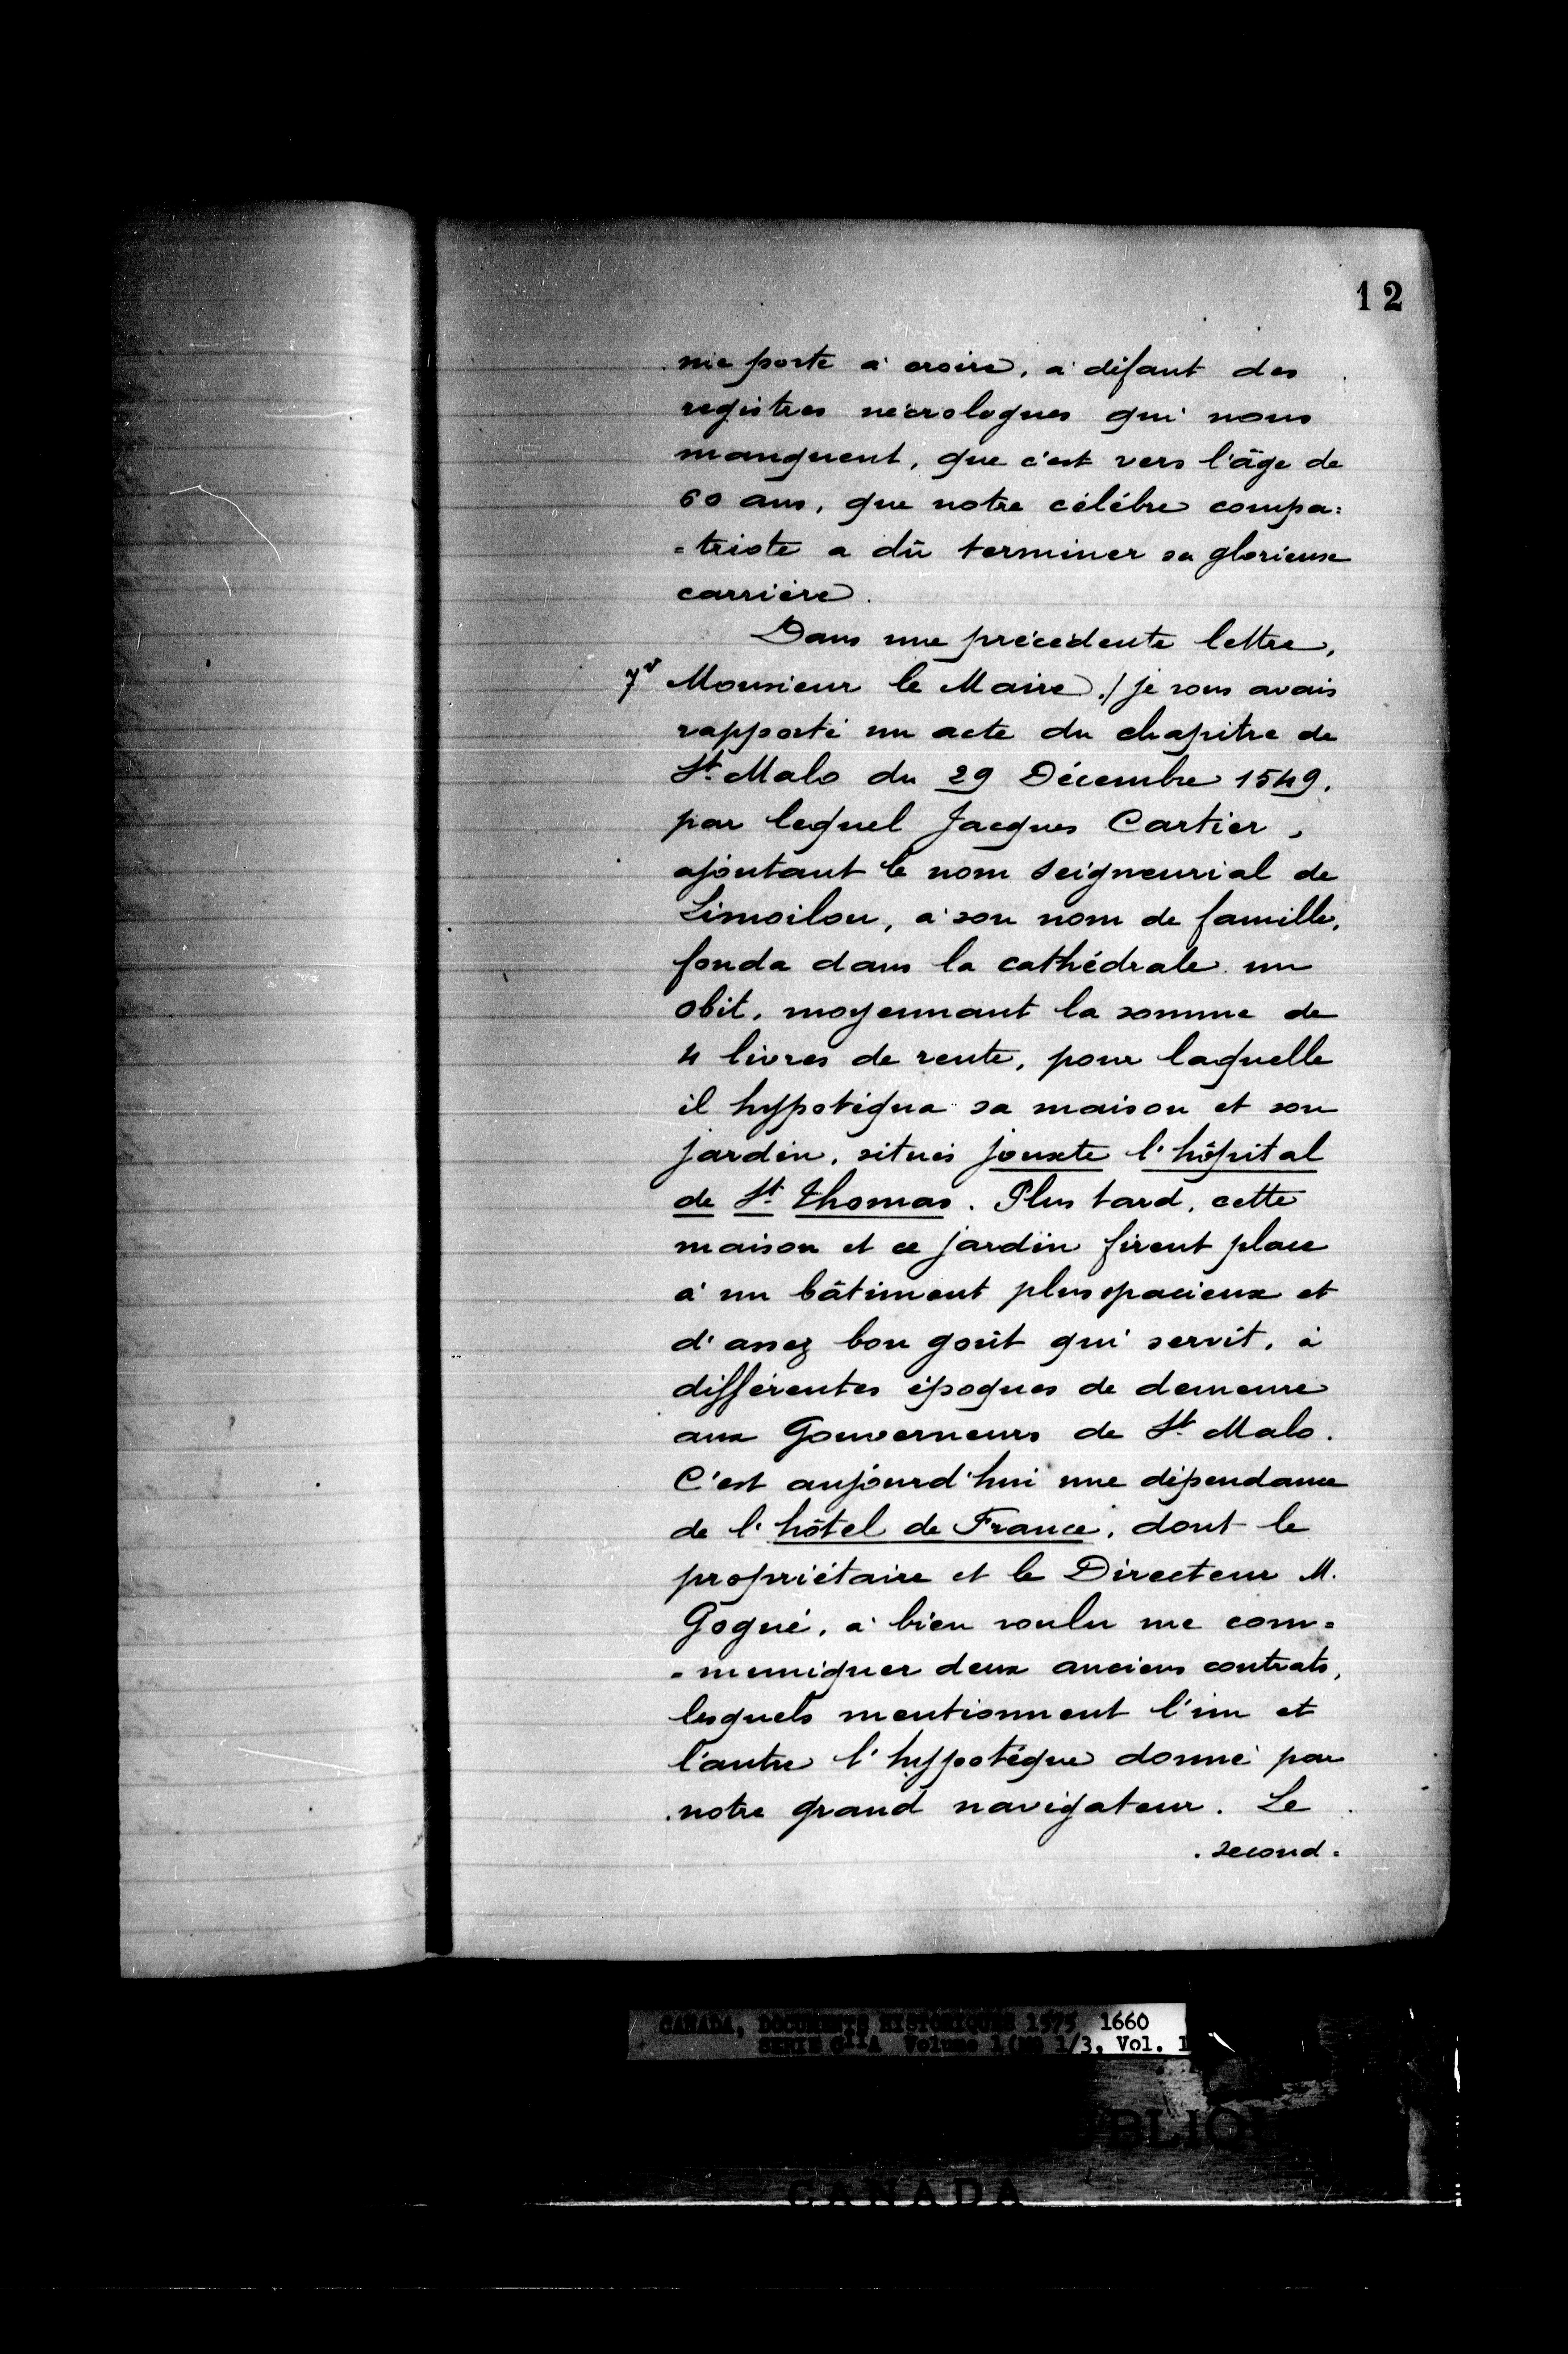 12
me porte à croire, à défaut des
registres nécrologues qui nous
manquent, que c'est vers l'âge de
60 ans, que notre célèbre compa=
=triote a dû terminer sa glorieuse
carrière.
Dans une précédente lettre,
7v Monsieur le Maire,/ je vous avais
rapporté un acte du chapitre de
St. Malo du 29 Décembre 1549,
par lequel Jacques Cartier,
ajoutant le nom seigneurial de
Limoilou, à son nom de famille,
fonda dans la cathédrale un
obit, moyennant la somme de
4 livres de rente, pour laquelle
il hypotéqua sa maison et son
jardin, situés jouxte l'hôpital
de St. Thomas. Plus tard, cette
maison et ce jardin firent place
à un bâtiment plus spacieux et
d'assez bon goût qui servit, à
différentes époques de demeure
aux Gouverneurs de St. Malo.
C'est aujourd'hui une dépendance
de l'hôtel de France, dont le
propriétaire et le Directeur M.
Gogué, a bien voulu me com=
=muniquer deux anciens contrats,
lesquels mentionnent l'un et
l'autre l'hypotéque donné par
notre grand navigateur. Le
second.
CANADA, DOCUMENTS HISTORIQUES 1575 1660
SERIE C11A Volume 1 (MG 1/3, Vol. I
BLIQ
CANADA